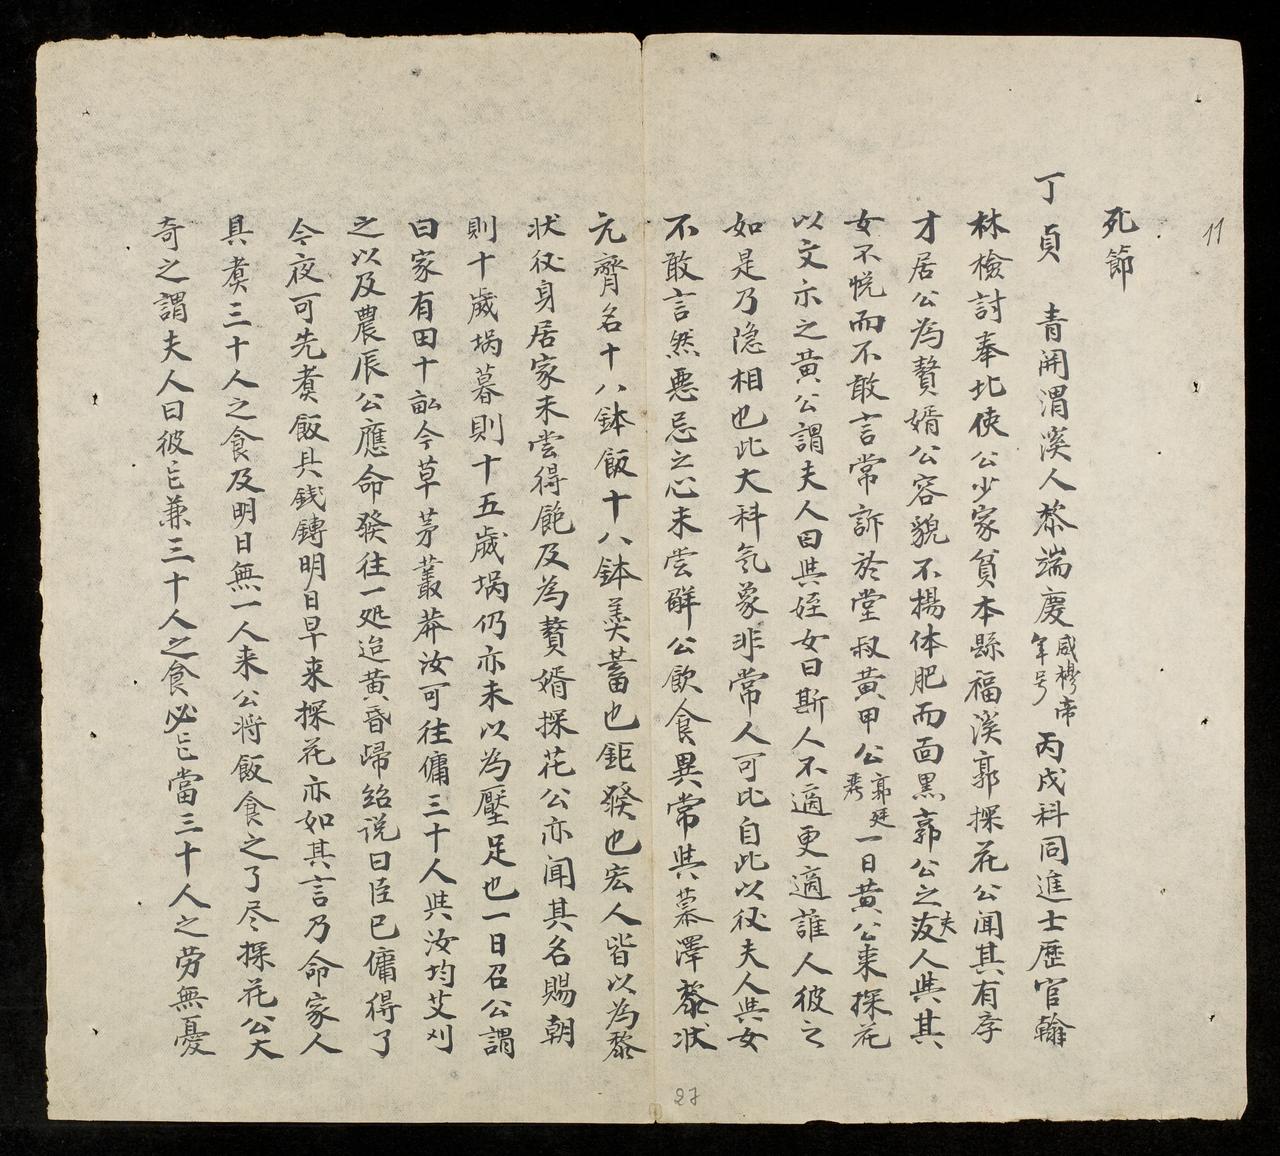 11
死節
丁貞 青開渭溪人黎端慶威穆帝年号丙戌科同進士歷官翰
林檢討奉北使公少家貧本縣福溪郭探花公闻其有孝
才居公為贅婿公容貌不揚体肥而面黒郭公之夫人與其
女不悦而不敢言常訴於堂叔黄甲公郭廷一日黄公来探花
以文示之黄公謂夫人因與姪女曰斯人不適更適誰人彼之
如是乃隐相也此大科気象非常人可比自此以後夫人與女
不敢言然悪忌之心未嘗觧公飲食異常與慕澤黎状
元齊名十八鉢飯十八鉢羙蓄也鉅發也宏人皆以為黎
状後身居家未嘗得飽及為贅婿探花公亦闻其名賜朝
則十歲堝暮則十五歲堝仍亦未以為壓足也一日召公謂
曰家有田十畝今草茅叢莽汝可往傭三十人與汝均艾刈
之以及農辰公應命發往一処迨黄昏歸紿说曰臣已傭得了
今夜可先煑飯具銭鏄明日早来探花亦如其言乃命家人
具煑三十人之食及明日無一人来公将飯食之了尽探花公大
奇之謂夫人曰彼㐌兼三十人之食必㐌當三十人之劳無憂
27